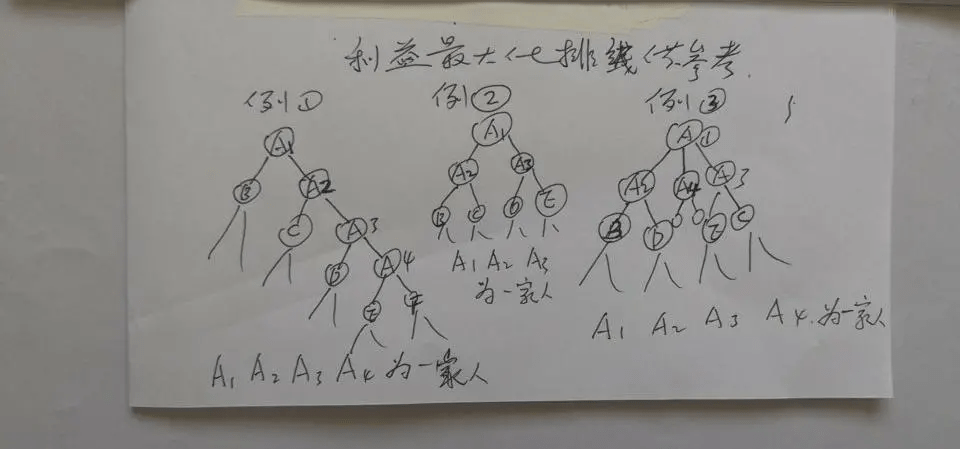 利益最大化排线供参考
例① 例② 例③
A1 A1 A①
B A2 A2 A3 A2 A4 A3
C A3 B C D E B D E C
B A4
E F
A1 A2 A3
为一家人
A1 A2 A3 A4 为一家人
A1 A2 A3 A4 为一家人